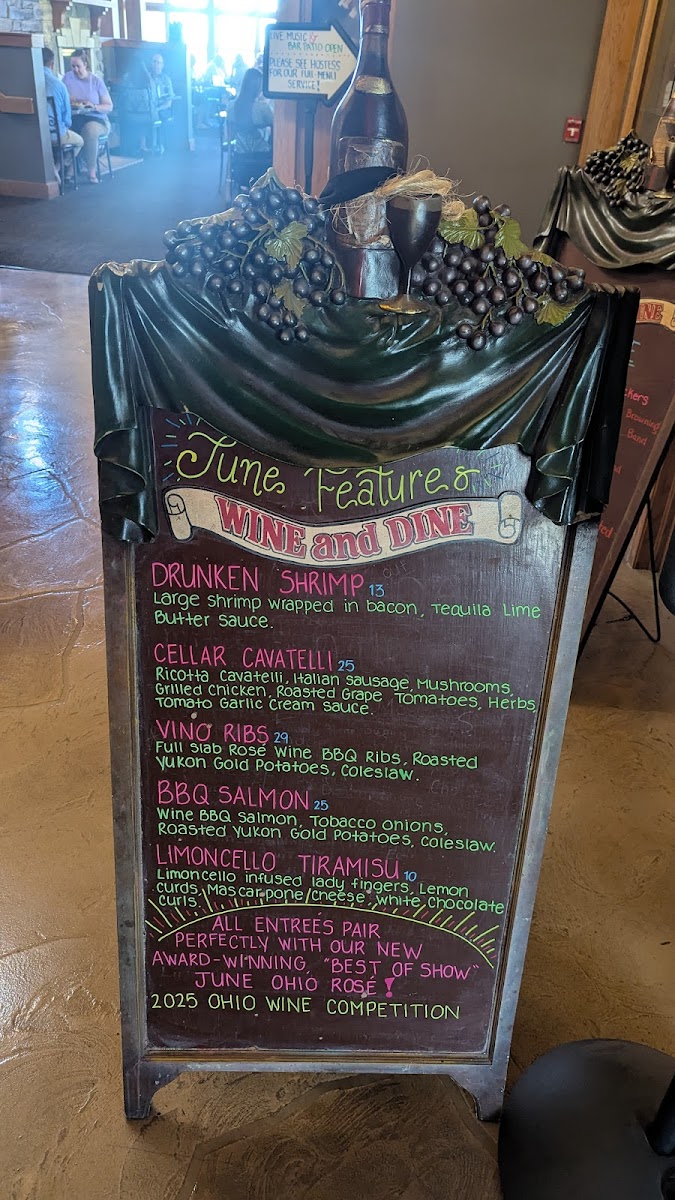 LIVE MUSIC &
BAR PATIO OPEN
PLEASE SEE HOSTESS
FOR OUR FULL-MENU
SERVICE!
June Features
WINE and DINE
DRUNKEN SHRIMP 13
Large shrimp wrapped in bacon, Tequila Lime
Butter sauce.
CELLAR CAVATELLI 25
Ricotta cavatelli, Italian sausage, Mushrooms,
Grilled chicken, Roasted Grape Tomatoes, Herbs,
Tomato Garlic Cream sauce.
VINO RIBS 29
Full slab Rosé Wine BBQ Ribs, Roasted
Yukon Gold Potatoes, Coleslaw.
BBQ SALMON 25
Wine BBQ Salmon, Tobacco onions,
Roasted Yukon Gold Potatoes, Coleslaw.
LIMONCELLO TIRAMISU 10
Limoncello infused lady fingers, Lemon
curds, Mascarpone cheese, white chocolate
curls.
ALL ENTREÉS PAIR
PERFECTLY WITH OUR NEW
AWARD-WINNING, "BEST OF SHOW"
JUNE OHIO ROSÉ!
2025 OHIO WINE COMPETITION
Browning
Band